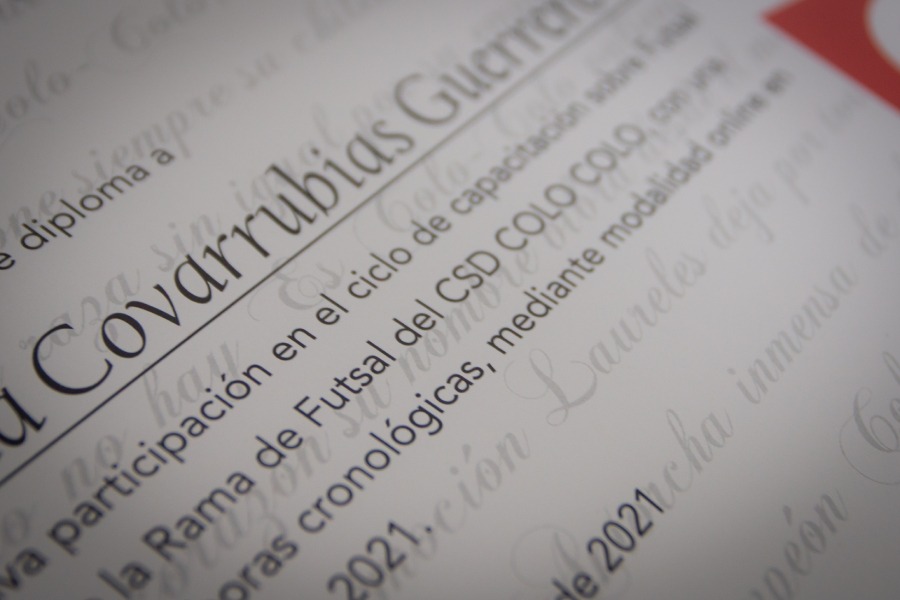 e diploma a
a Covarrubias Guerrero
va participación en el ciclo de capacitación sobre Futsal
la Rama de Futsal del CSD COLO COLO, con una
oras cronológicas, mediante modalidad online en
2021.
de 2021
Colo-Colo
siempre su
raza sin igual
no hay
Es Colo-Colo
corazón su nombre
moción Laureles deja por
cha inmensa de